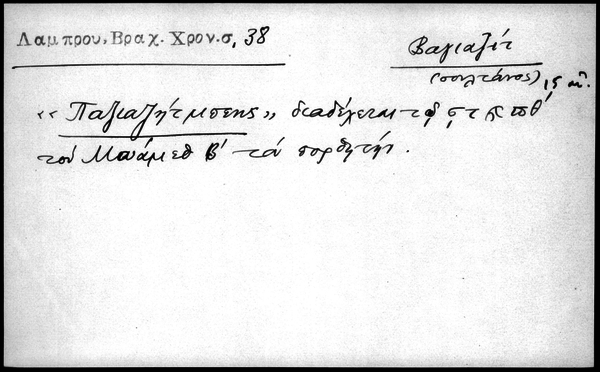 Λαμπρου, Βραχ. Χρον. σ, 38
Βαγιαζήτ
(σουλτάνος) 15 αἰ.
«Παζιαζήτ μπεης» διαδέχεται τῷ ͵ϛ Ϡ πθ΄
τον Μωάμεθ Β΄ τὸν πορθητήν.